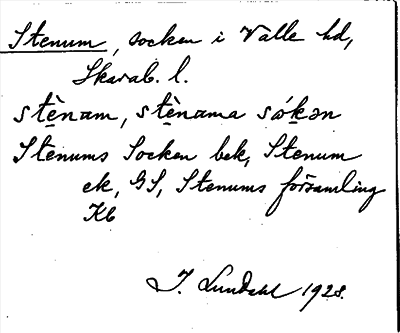 Stenum, socken i Valle hd,
Skarab. l.
stènam, stènama sókən
Stenums Socken bek, Stenum
ek, GS, Stenums församling
Kb
I. Lundahl 1928.